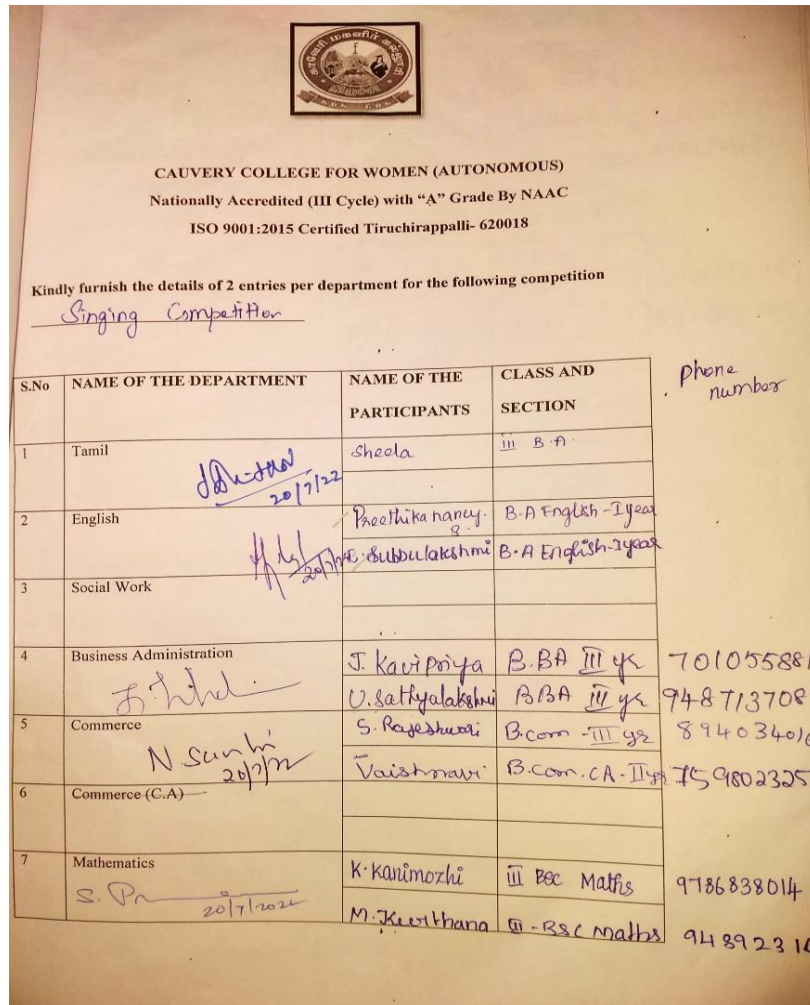 காவேரி மகளிர் கல்லூரி
CAUVERY COLLEGE FOR WOMEN (AUTONOMOUS)
Nationally Accredited (III Cycle) with “A” Grade By NAAC
ISO 9001:2015 Certified Tiruchirappalli- 620018
Kindly furnish the details of 2 entries per department for the following competition
Singing Competition
S.No NAME OF THE DEPARTMENT NAME OF THE PARTICIPANTS CLASS AND SECTION phone number
1 Tamil Sheela III B.A.
20/7/22
2 English Preethika nancy. S. B.A English - I year
Subbulakshmi B.A English-I year
3 Social Work
4 Business Administration J. Kavi priya B.BA III yr 701055881
U. Sathyalakshmi BBA III yr 948713708
5 Commerce S. Rajeshwari B.com - III yr 894034016
20/7/22 Vaishnavi B.com. CA - II yr 759802325
6 Commerce (C.A)
7 Mathematics K. Kanimozhi III BSC Maths 9786838014
S. 20/7/2022 M. Keerthana III - BSC Maths 94892316